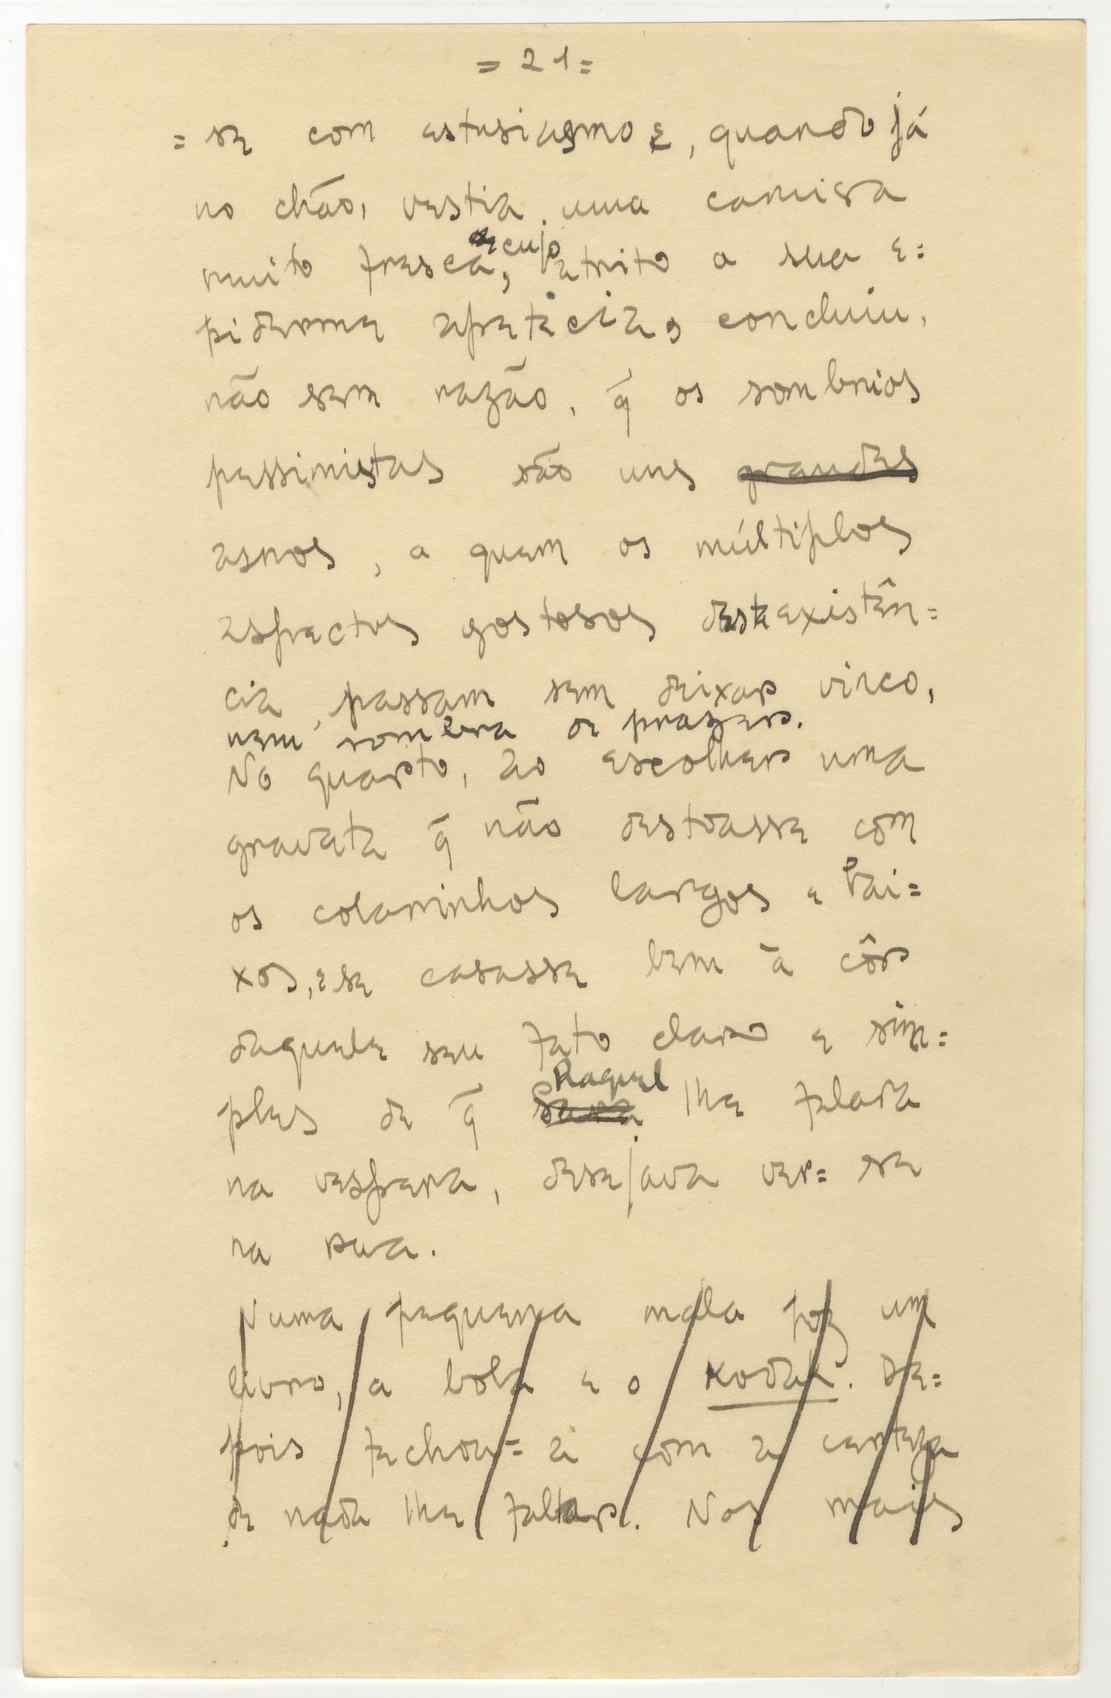 = 21 =
= se com estusiasmo e, quando já
no chão, vestia uma camisa
de cujo
muito fresca, atrito a sua e=
piderme apetecia, concluiu,
não sem razão, q̃ os sombrios
pessimistas são uns grandes
asnos, a quem os múltiplos
aspectos gostosos desta existên=
cia, passam sem deixar vinco,
nem sombra de prazer.
No quarto, ao escolher uma
gravata q̃ não destoasse com
os colarinhos largos e bai=
xos, e se casasse bem à côr
daquele seu fato claro e sim=
Raquel
ples de q̃ Sara lhe falara
na vespera, desejava ver=se
na rua.
Numa pequena mala poz um
livro, a bola e o Kodak. De=
pois fechou=a com a certeza
de nada lhe faltar. Nos mais